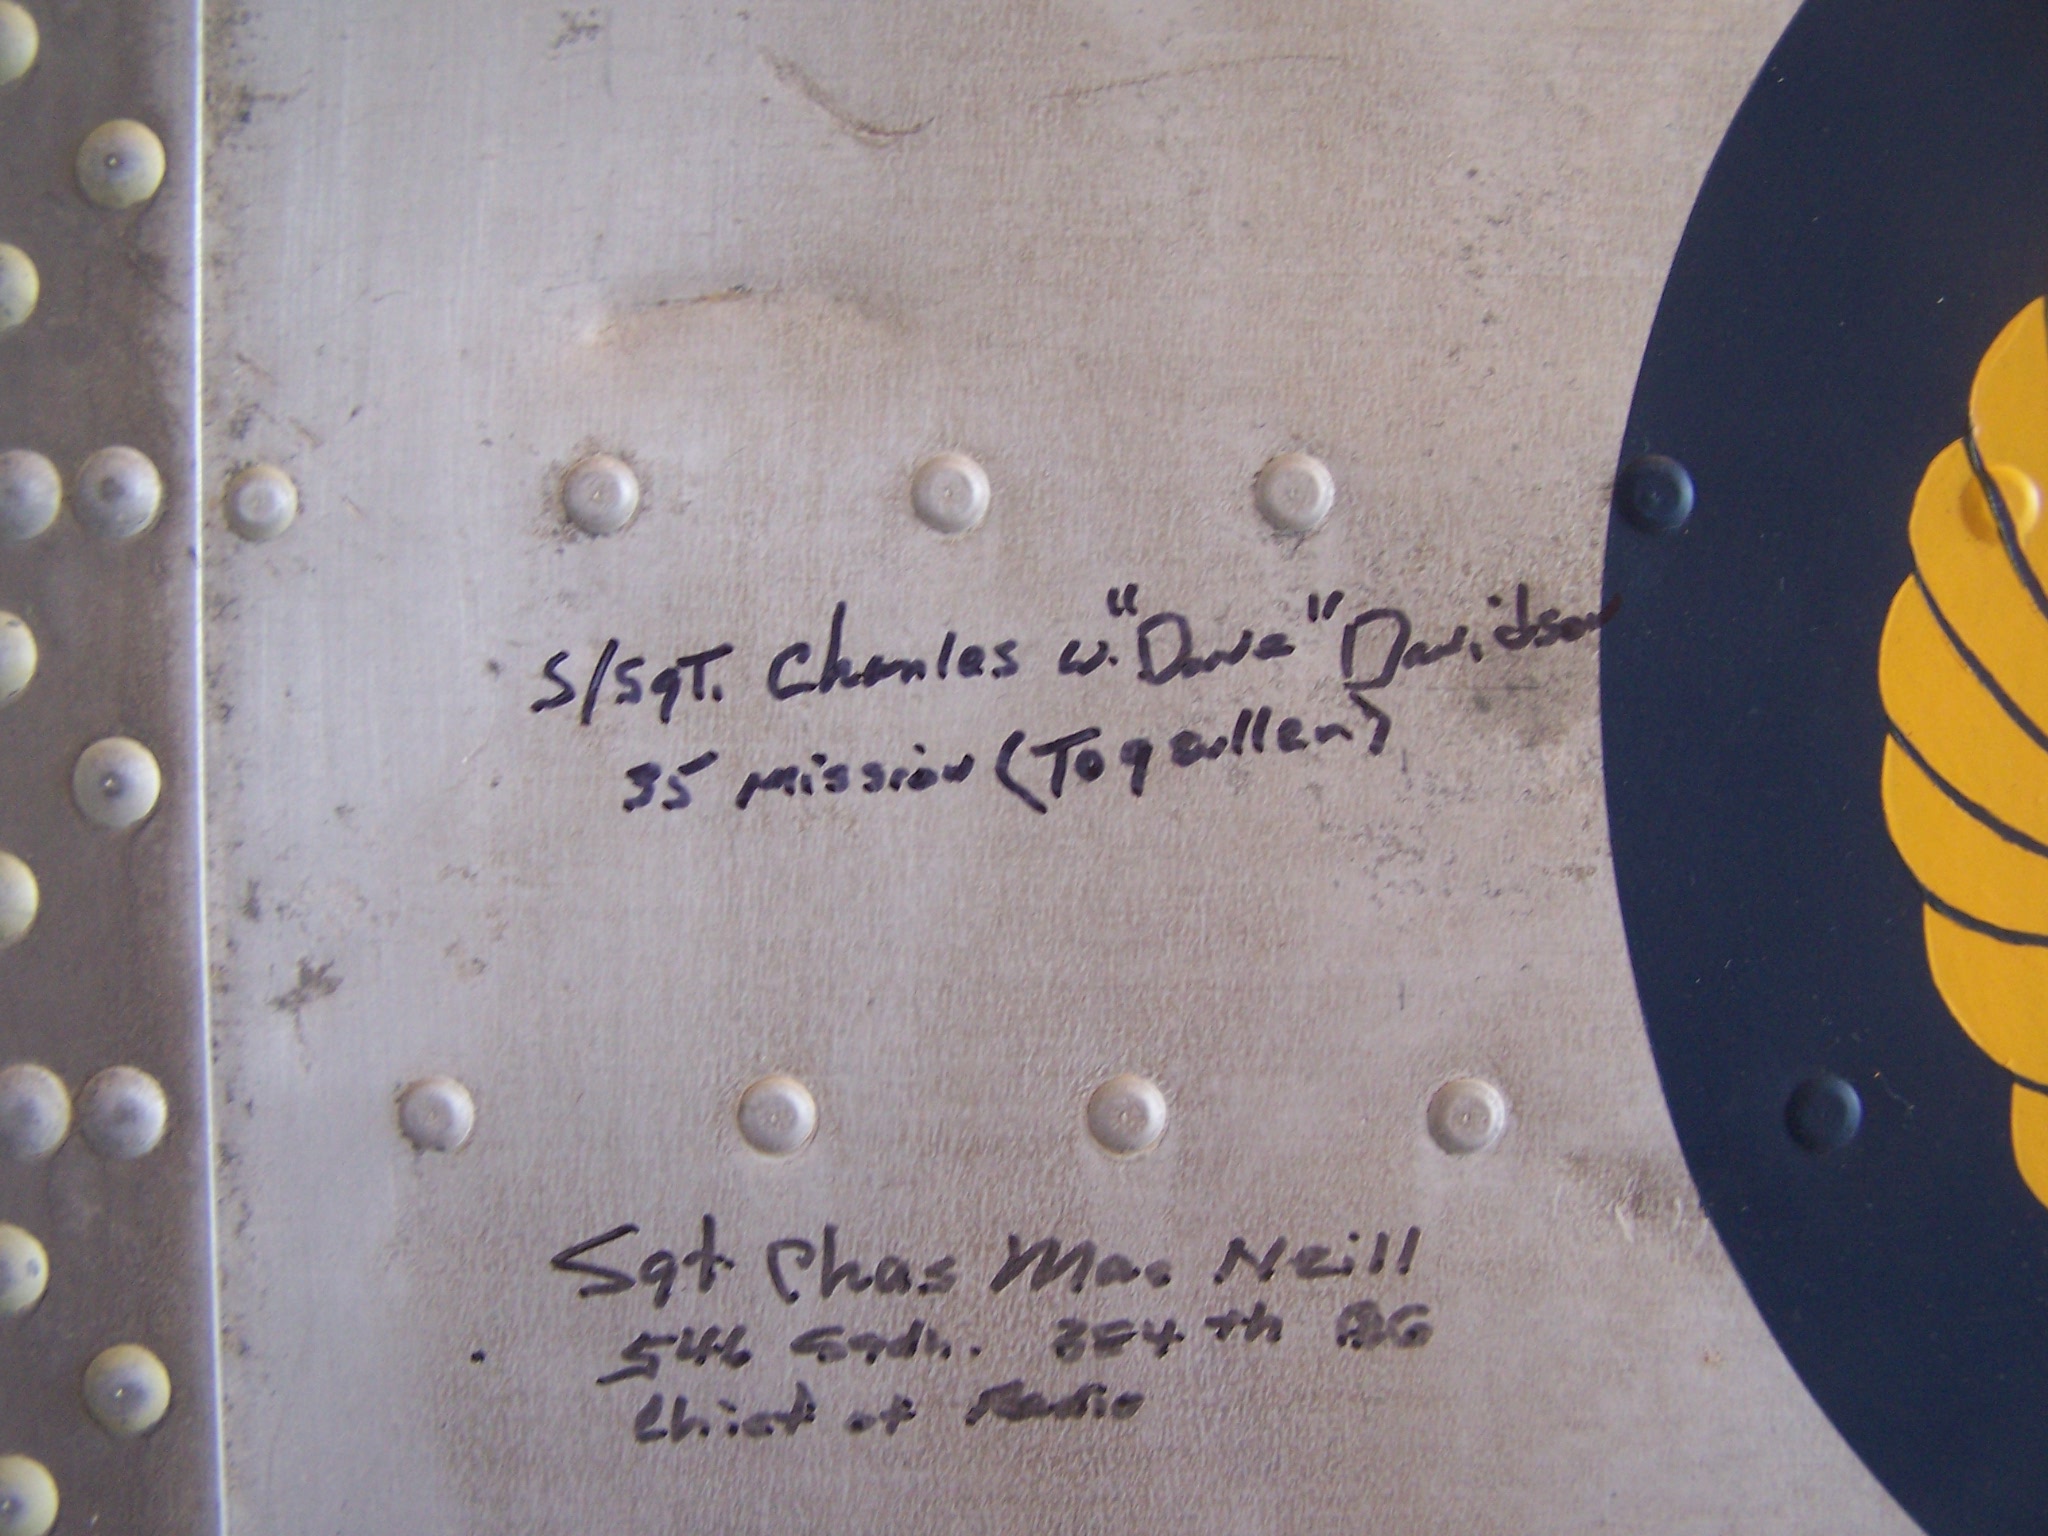 S/Sgt. Charles W. "Dave" Davidson
35 Mission (Togguller)
Sgt Chas Mac Neill
546 Sqdn. 384th BG
Chief of Radio